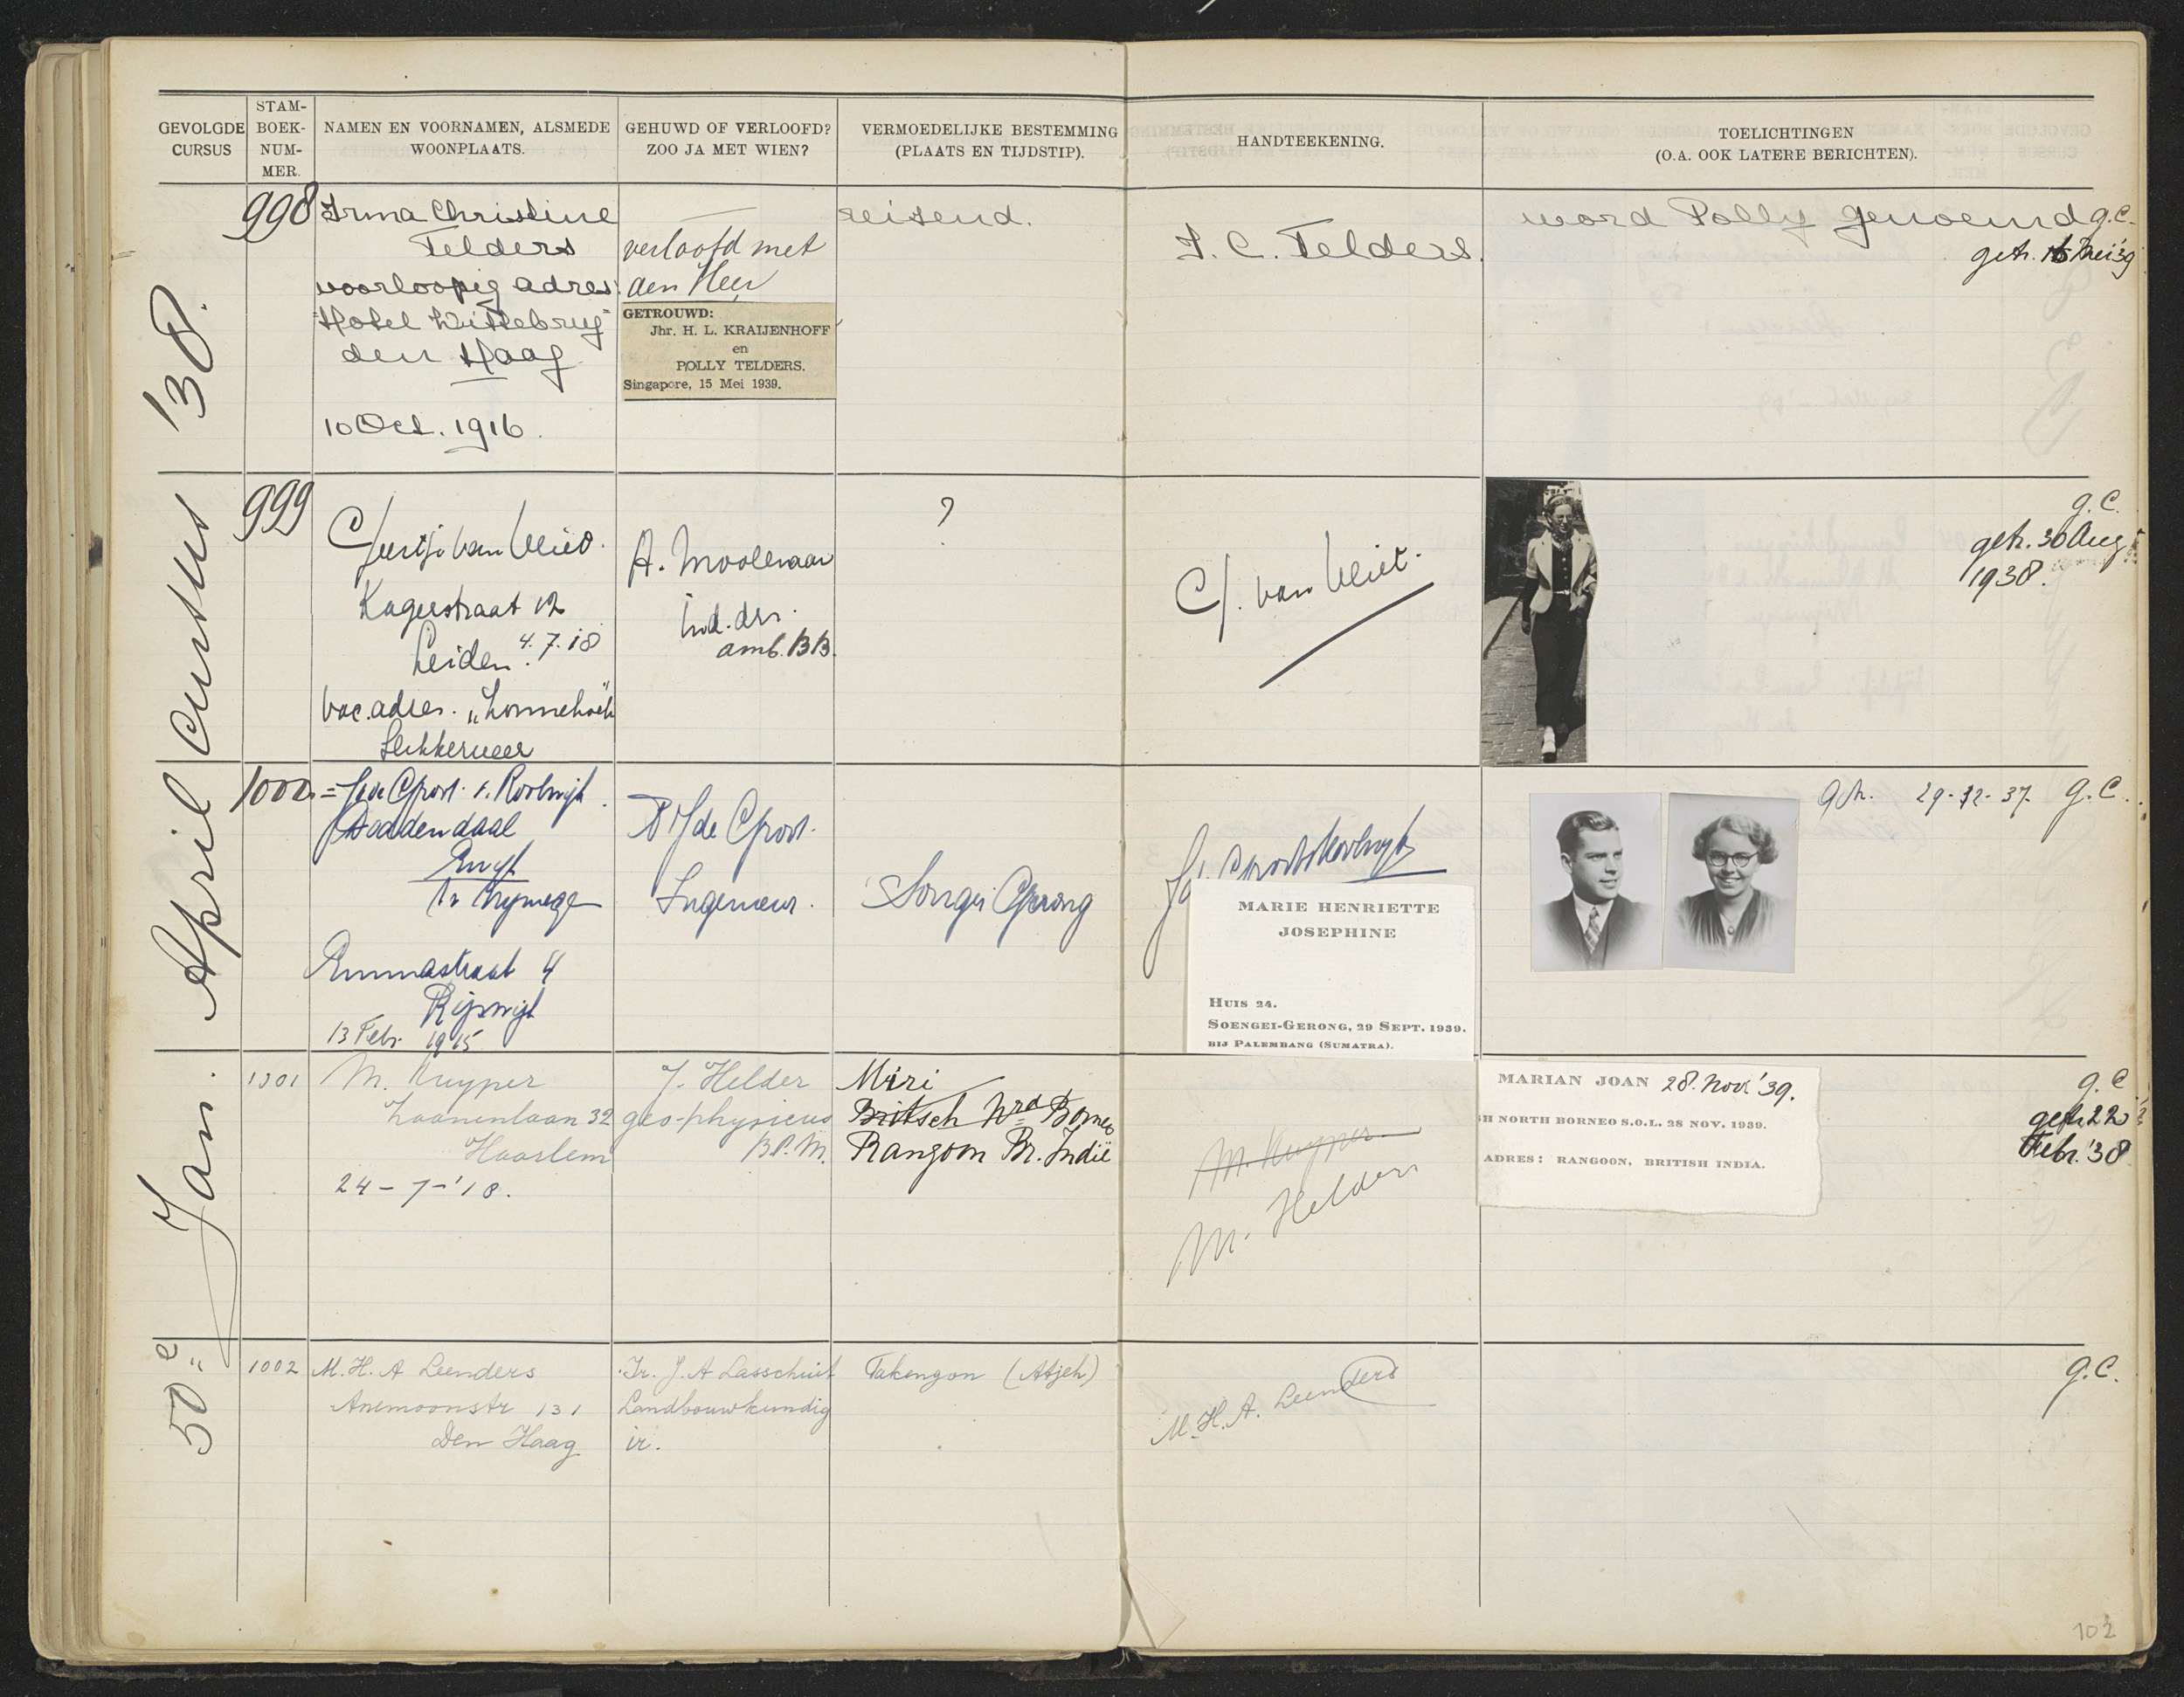 GEVOLGDE
CURSUS
STAM-
BOEK-
NUM-
MER.
NAMEN EN VOORNAMEN, ALSMEDE
WOONPLAATS.
GEHUWD OF VERLOOFD?
ZOO JA MET WIEN?
VERMOEDELIJKE BESTEMMING
(PLAATS EN TIJDSTIP).
HANDTEEKENING.
TOELICHTINGEN
(O.A. OOK LATERE BERICHTEN).
50e Jan. April cursus '38.
998
Irma Christine
Telders
voorloopig adres:
"Hotel Wittebrug"
den Haag
10 Oct. 1916.
verloofd met
den Heer
GETROUWD:
Jhr. H. L. KRAIJENHOFF
en
POLLY TELDERS.
Singapore, 15 Mei 1939.
reizend.
I. C. Telders.
word Polly genoemd
g.C.
getr. 15 Mei '39
999
Geertje van Vliet.
Kagerstraat 12
Leiden. 4.7.18
vac. adres.
Slikkerveer
A. Moolenaar
ind. drs.
amb. BB.
?
G. van Vliet.
g.C.
getr. 30 Aug
1938.
1000
Doddendaal
Ewijk
bij Nijmegen
Emmastraat 4
Rijswijk
13 Febr. 1915
de Groot.
Ingenieur.
Songei Gerong
MARIE HENRIETTE
JOSEPHINE
HUIS 24.
SOENGEI-GERONG, 29 SEPT. 1939.
BIJ PALEMBANG (SUMATRA).
getr. 29-12-37. g.C.
1001
M. Kuyper
Zaanenlaan 32
Haarlem
24-7-'18.
J. Helder
geo-physicus
B.P.M.
Miri
Britsch Nrd Borneo
Rangoon Br. Indië
M. Kuyper
M. Helder
MARIAN JOAN 28. Nov. '39.
H NORTH BORNEO S.O.L. 28 NOV. 1939.
ADRES: RANGOON, BRITISH INDIA.
g.C.
getr. 22
Febr. '38
1002
M. H. A Leenders
Anemoonstr 131
Den Haag
Ir. J. A Lasschuit
Landbouwkundig
ir.
Takengon (Atjeh)
M. H. A. Leenders
g.C.
102